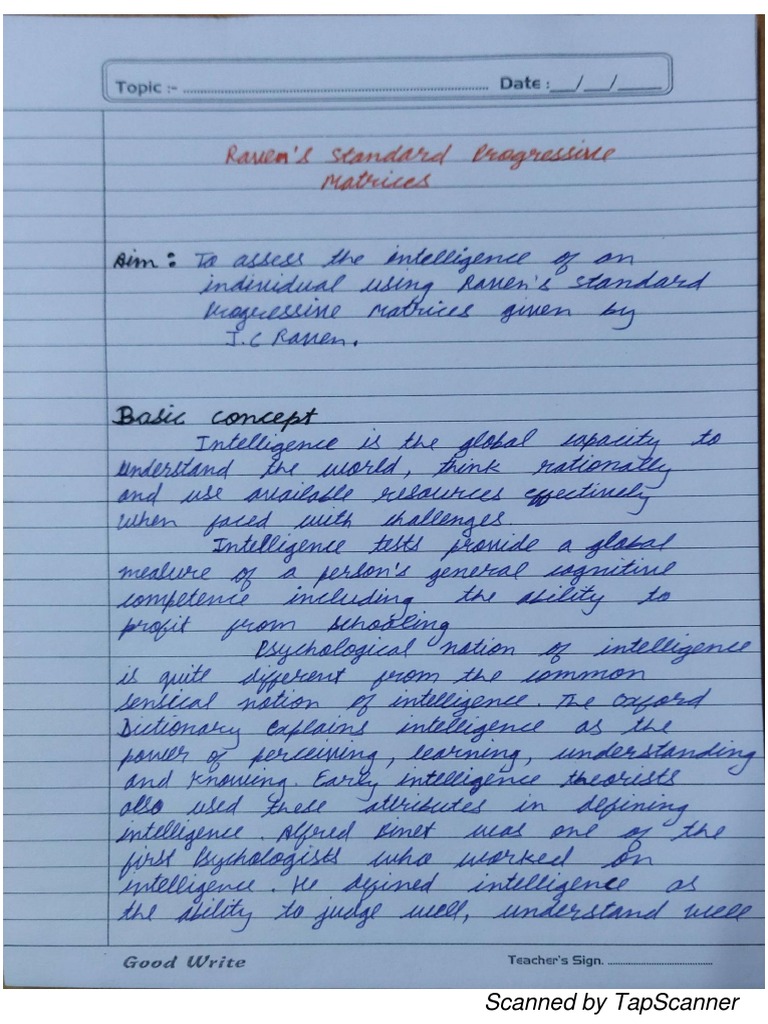 Topic :- ........................................ Date : __/__/____
Raven's Standard Progressive
Matrices
Aim : To assess the intelligence of an
individual using Raven's Standard
Progressive Matrices given by
J.C Raven.
Basic concept
Intelligence is the global capacity to
understand the world, think rationally
and use available resources effectively
when faced with challenges.
Intelligence tests provide a global
measure of a person's general cognitive
competence including the ability to
profit from schooling
Psychological notion of intelligence
is quite different from the common
sensical notion of intelligence. The Oxford
Dictionary explains intelligence as the
power of perceiving, learning, understanding
and knowing. Early intelligence theorists
also used these attributes in defining
intelligence. Alfred Binet was one of the
first Psychologists who worked on
intelligence. He defined intelligence as
the ability to judge well, understand well
Good Write Teacher's Sign. ....................
Scanned by TapScanner